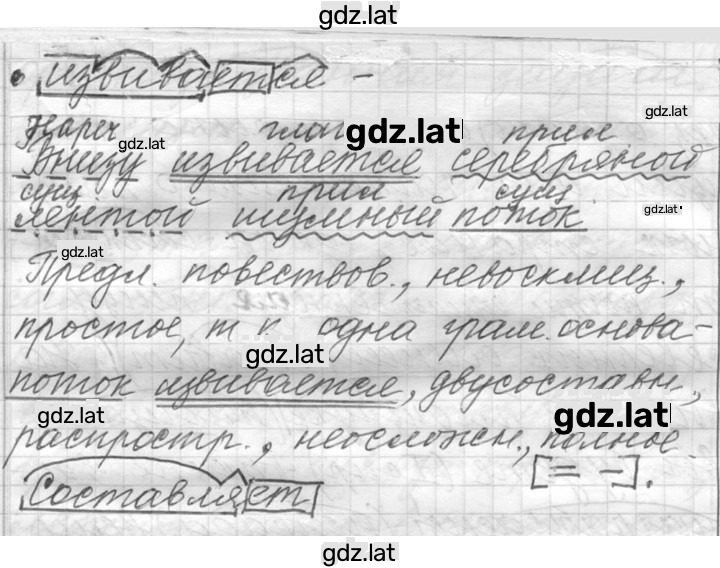 gdz.lat
извивается –
gdz.lat
Нареч глаг gdz.lat прил
gdz.lat
Внизу извивается серебряной
сущ прил сущ
лентой шумный поток gdz.lat
gdz.lat
Предл. повествов., невосклиц.,
простое, т к одна грам. основа-
gdz.lat
поток извивается, двусоставн.,
gdz.lat gdz.lat
распростр., неосложн., полное
[= –].
Составляет
gdz.lat